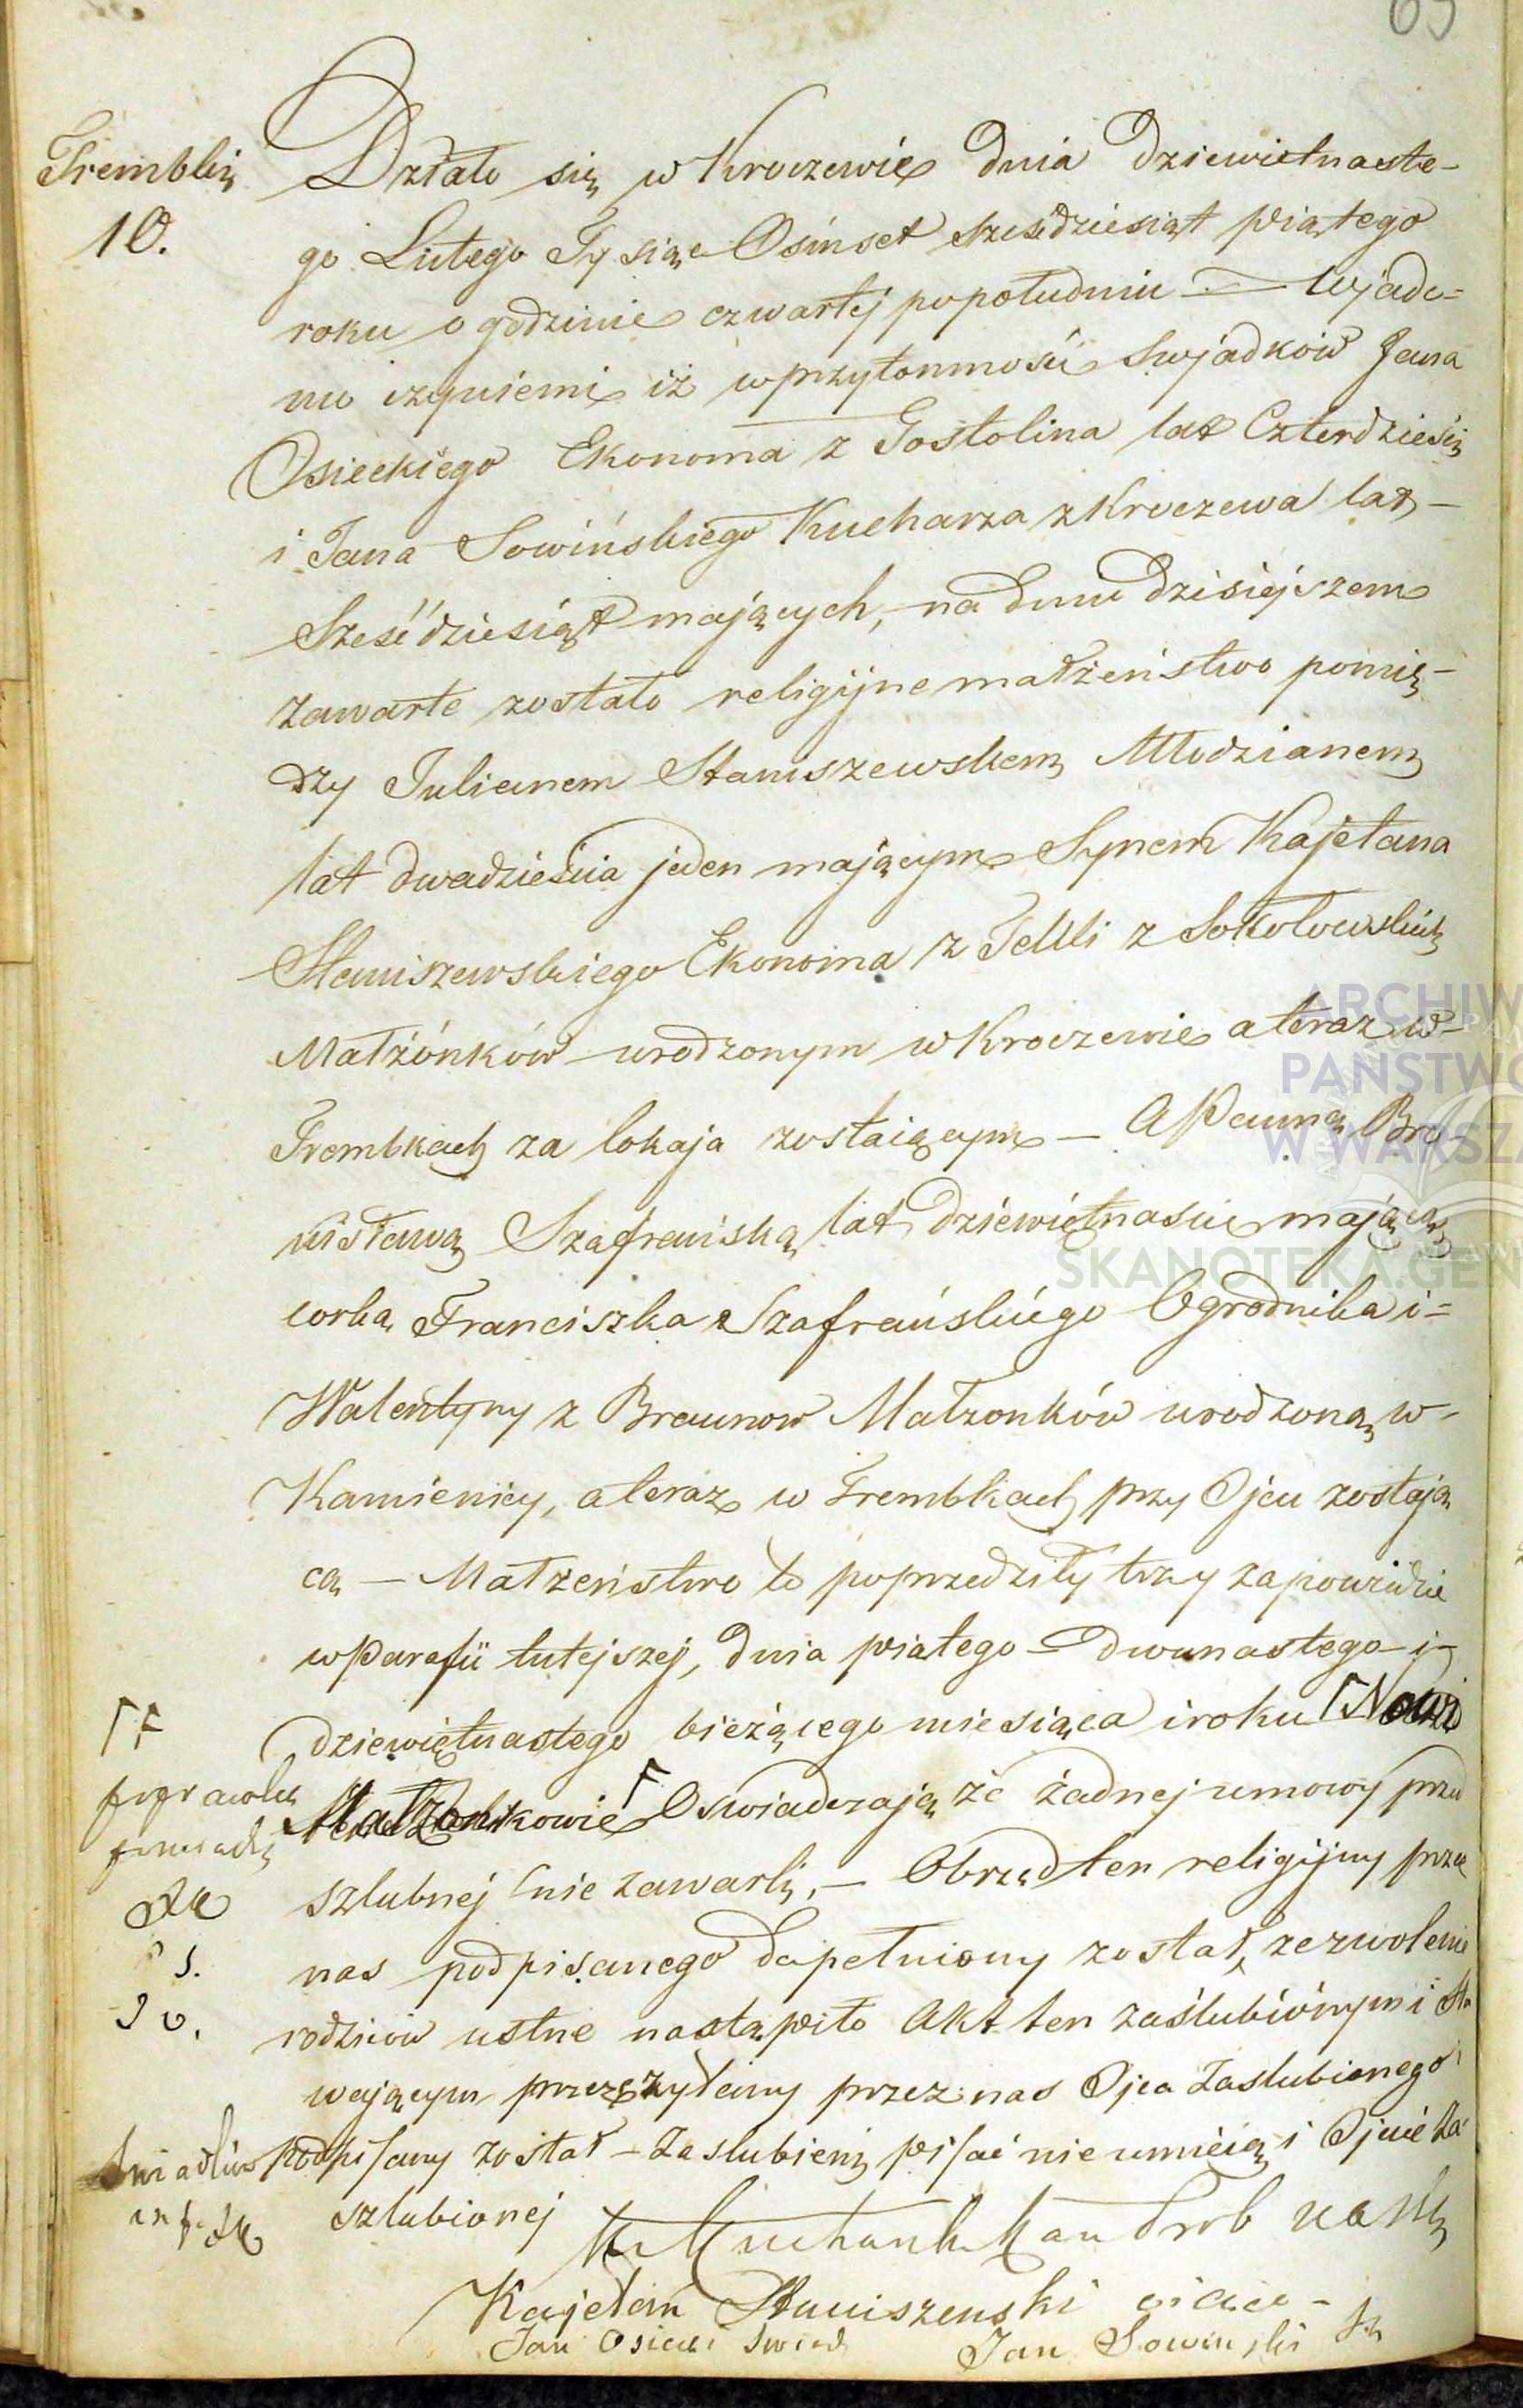 Tremblki
10.
Działo się w Kroczewie dnia dziewietnaste-
go Lutego Tysiąc Osimset sześćdziesiąt piątego
roku o godzinie czwartej popołudniu — Wjado=
mo czyniemi iż w przytomności Swjadków Jana
Osieckiego Ekonoma z Gostolina lat Czterdzieści
i Jana Sowińskiego Kucharza z Kroczewa lat —
Sześćdziesiąt mających, na dniu dzisiejszem
zawarte zostało religijne małżeństwo pomię-
dzy Julianem Staniszewskem Młodzianem
lat dwadzieścia jeden mającym Synem Kajetana
Staniszewskiego Ekonoma z Tekli z Sokołowskich
Małżónków urodzonym w Kroczewie a teraz w-
Trembkach za lokaja zostaiącym — A Panną Bro-
nisławą Szafrańską lat dziewiętnascie mającą
corką Franciszka Szafrańskiego Ogrodnika i=
Walentyny z Braunow Małzonków urodzoną w-
Kamienicy, a teraz w Trembkach przy Ojcu zostają
cą — Małzeństwo to poprzedziły trzy zapowiedzie
w Parafii tutejszej, dnia piatego — dwunastego i-
dziewiętnastego bieżącego miesiąca i roku Nowi
Małzonkowie Oswiadczają że żadnej umowy przed
szlubnej nie zawarli, — Obrzęd ten religijny przez
nas podpisanego dopełniony został, zezwolenie
rodziców ustne nastąpiło Akt ten zaślubionym i Sta
wającym przeczytany przez nas Ojca Zaslubionego i
Swiadków podpisany został — Zaslubieni pisać nie umieią i Ojciec Za
szlubionej
Kajetan Staniszewski ociec -
Jan Osiecki Swiad
Jan Sowinski
63
poprawka
ARCHIW
PAŃSTWO
W WARSZA
SKANOTEKA.GEN